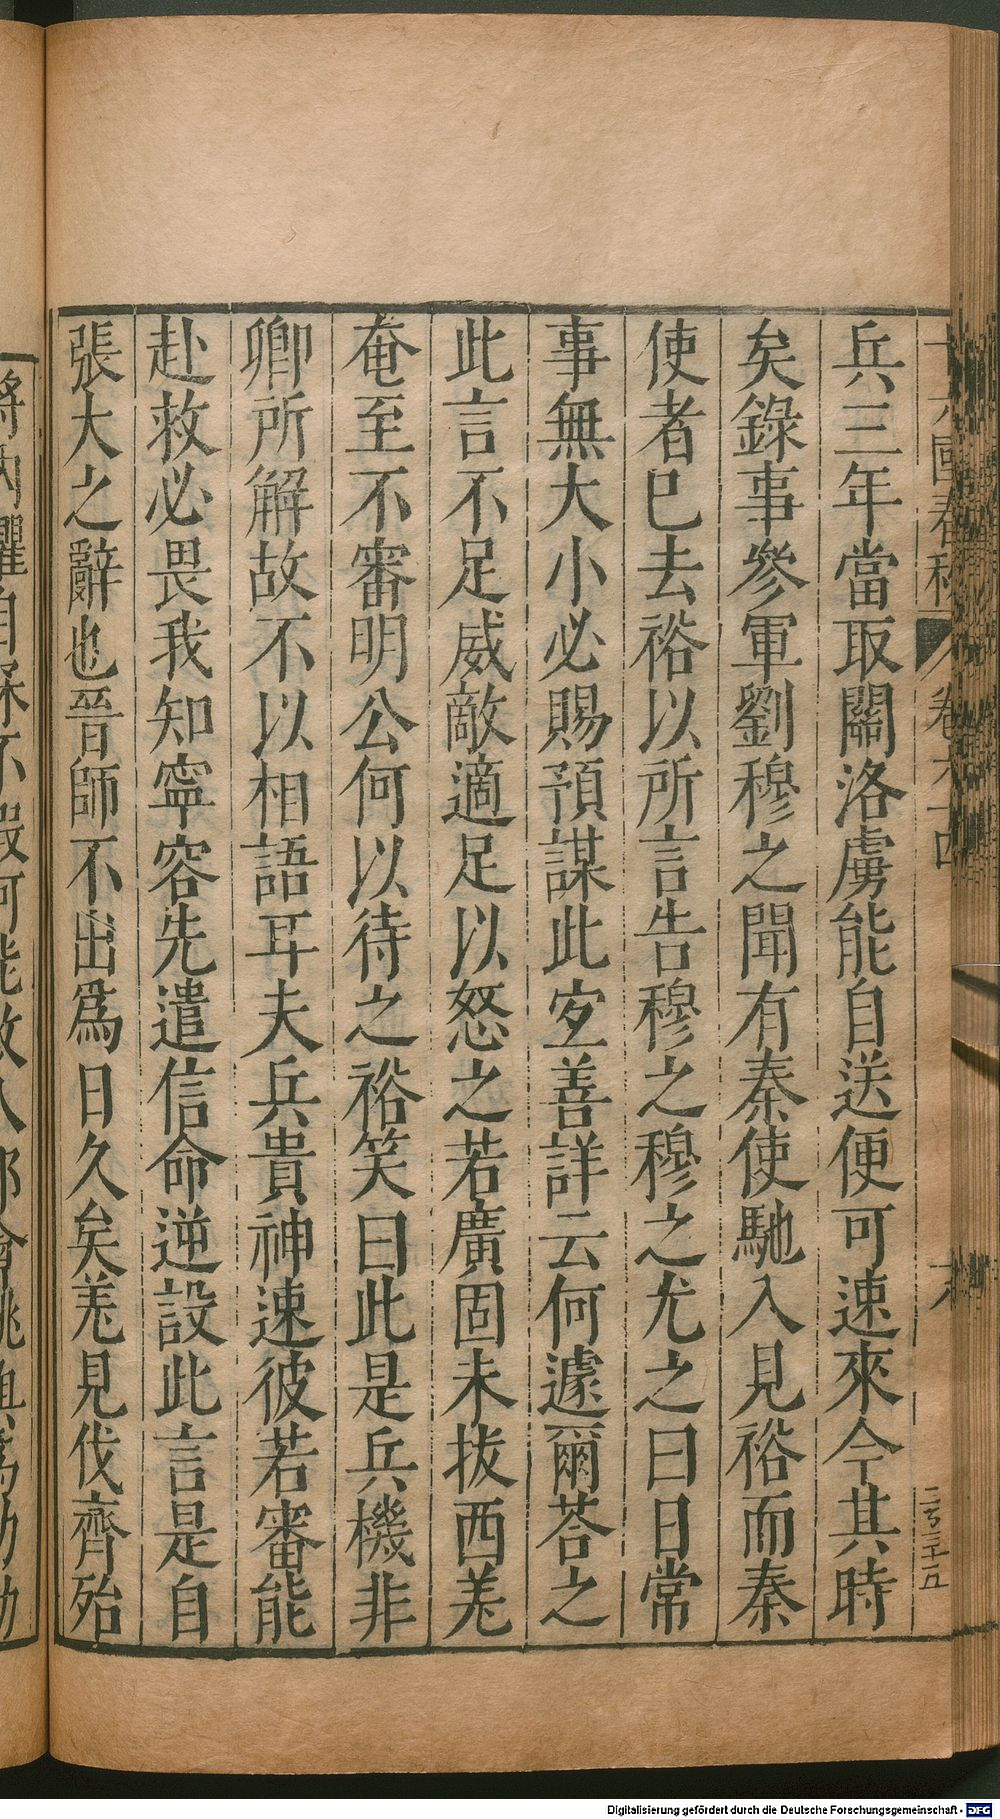 兵三年當取關洛虜能自送便可速來今其時
矣錄事參軍劉穆之聞有秦使馳入見裕而秦
使者已去裕以所言告穆之穆之尤之曰日常
事無大小必賜預謀此宜善詳云何遽爾荅之
此言不足威敵適足以怒之若廣固未拔西羌
奄至不審明公何以待之裕笑曰此是兵機非
卿所解故不以相語耳夫兵貴神速彼若審能
赴救必畏我知寧容先遣信命逆設此言是自
張大之辭也晉師不出爲日久矣羌見伐齊殆
將內懼自保不暇何能救人邪
十六國春秋 卷六十四
二百三十五
Digitalisierung gefördert durch die Deutsche Forschungsgemeinschaft - DFG